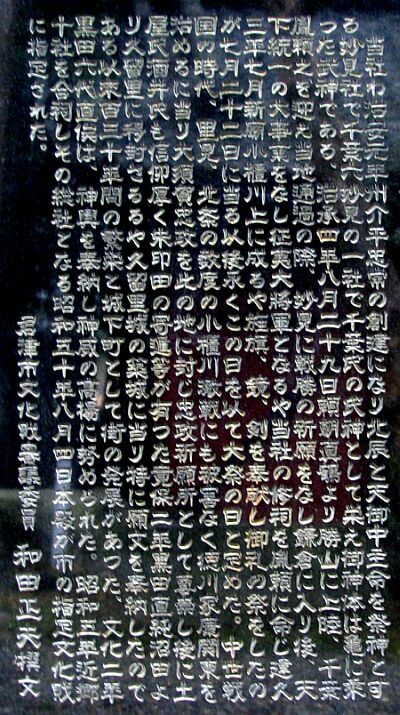 当社わ治安元年州介平忠常の創建になり北辰と天御中主命を祭神とす
る妙見社で千葉六妙見の一社で千葉氏の氏神として栄え御神体は亀に乗
った武神である、治承四年八月二十九日頼朝真鶴より勝山に上陸、千葉
胤頼之を迎え当地通過の際、妙見に戦勝の祈願をなし鎌倉に入り後、天
下統一の大事業をなし征夷大将軍となるや当社の修祠を胤頼に命し建久
三年七月新願小櫃川上に成るや旌旗、鏡、剣を奉献し御礼の祭をしたの
が七月二十二日に当る以後永くこの日を以て大祭の日と定めた。中世戦
国の時代、里見、北条の数度の小櫃川激戦にも被害なく徳川家康関東を
治めるに当り大須賀忠政を此の地に封じ忠政祈願所として尊崇し後に土
屋氏酒井氏も信仰厚く朱印田の寄進等が有つた寛保二年黒田直純沼田よ
り久留里に移封さるるや久留里城の築城に当り特に願文を奉納したので
ある以来百三十年間の繁栄と城下町として街の発展があつた。文化二年
黒田六代直侯は、神輿を奉納し神威の高揚に努められた。昭和三年近郷
十社を合祠しその総社となる昭和五十年八月四日本殿が市の指定文化財
に指定された。
君津市文化財審議委員 和田正夫撰文